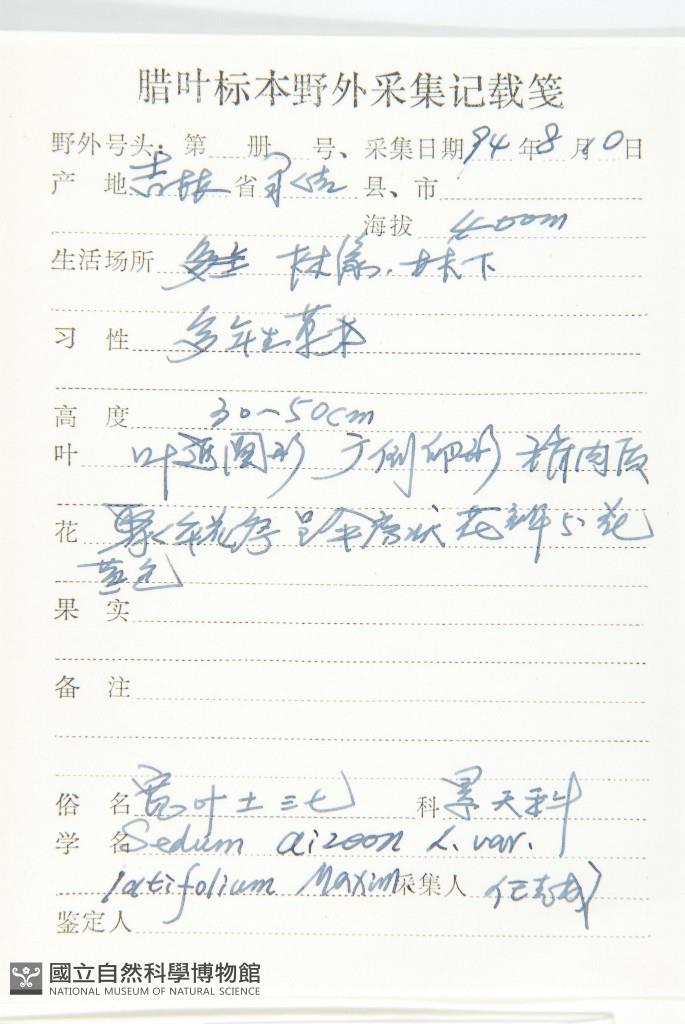 腊叶标本野外采集记载笺
野外号头：第 册 号、采集日期 94 年 8 月 10 日
产 地 吉林 省 县、市
海拔 400m
生活场所 林缘．林下
习 性 多年生草本
高 度 30—50cm
叶 叶近圆形 广倒卵形 稍肉质
花 聚伞花序呈伞房状 花瓣5．花
黄色
果 实
备 注
俗 名 宽叶土三七 科 景天科
学 名 Sedum aizoon L. var.
latifolium Maxim 采集人
鉴定人
國立自然科學博物館
NATIONAL MUSEUM OF NATURAL SCIENCE